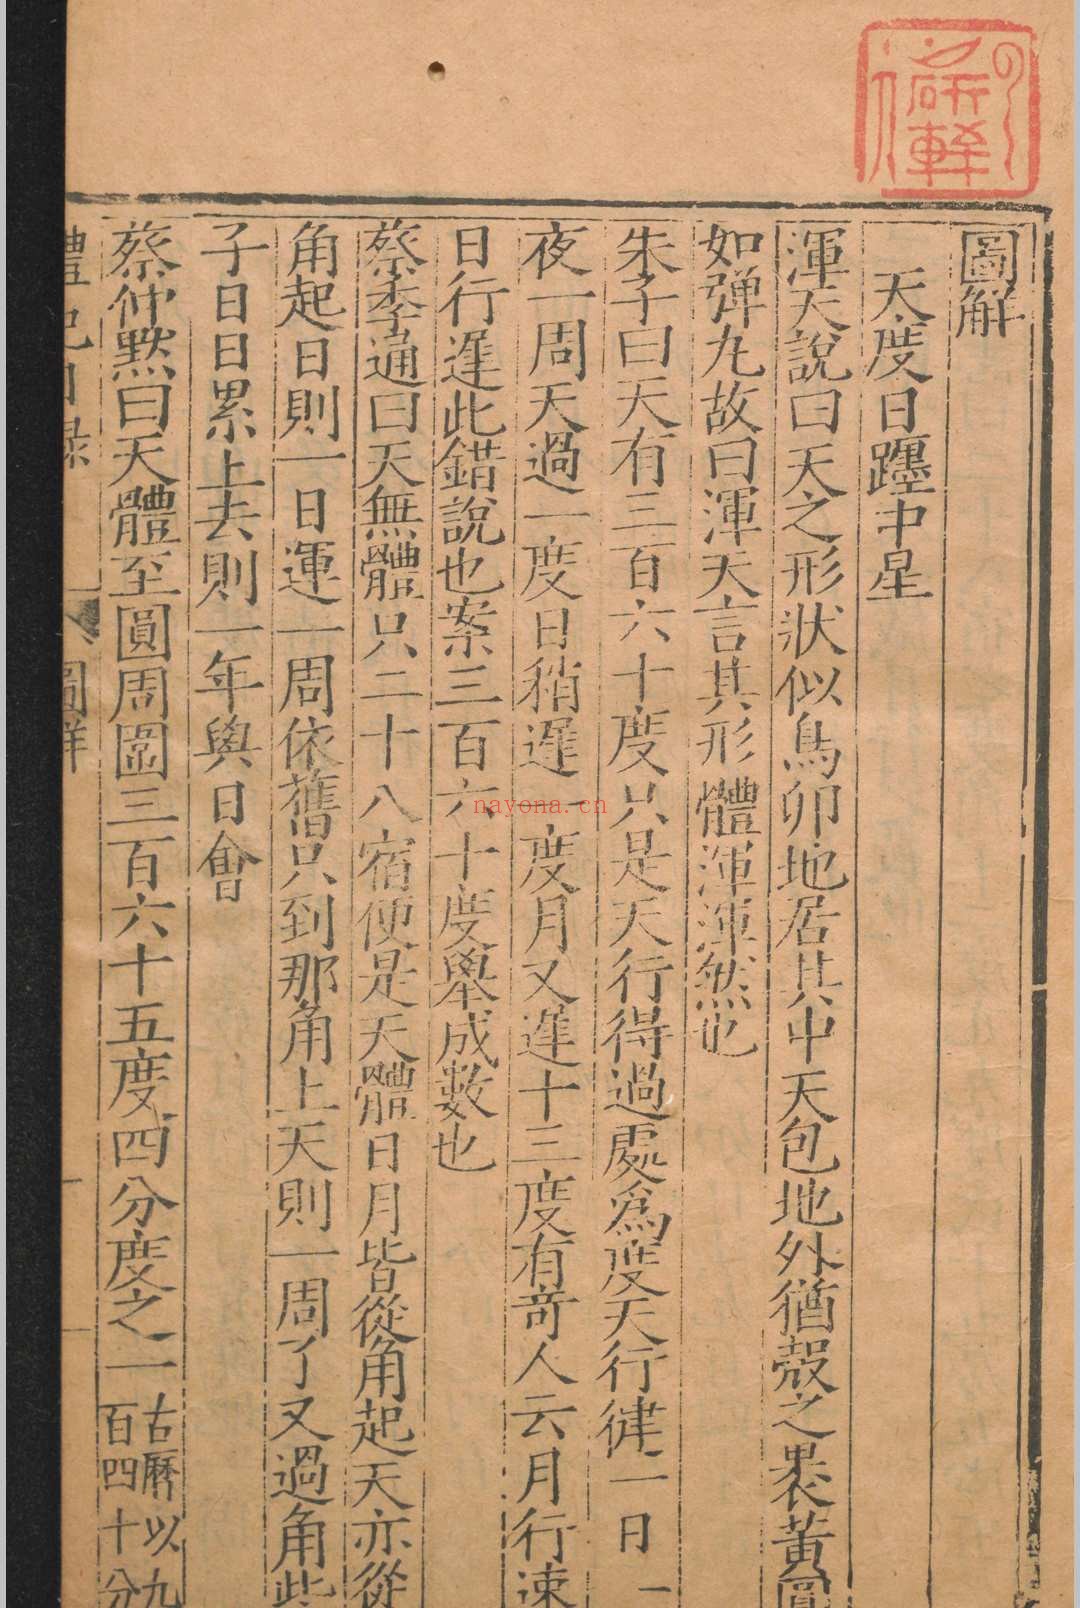 圖解
天度日躔中星
渾天說曰天之形狀似鳥卵地居其中天包地外猶殼之褁黃圓
如弹九故曰渾天言其形體渾渾然也
朱子曰天有三百六十度只是天行得過處爲度天行健一日一
夜一周天過一度日稍遲一度月又遲十三度有竒人云月行速
日行遲此錯說也案三百六十度舉成數也
蔡季通曰天無體只二十八宿便是天體日月皆從角起天亦從
角起日則一日運一周依舊只到那角上天則一周了又過角些
子日日累上去則一年與日會
蔡仲黙曰天體至圓周圍三百六十五度四分度之一古曆以九
百四十分
禮記目録
圖解
nayona.cn